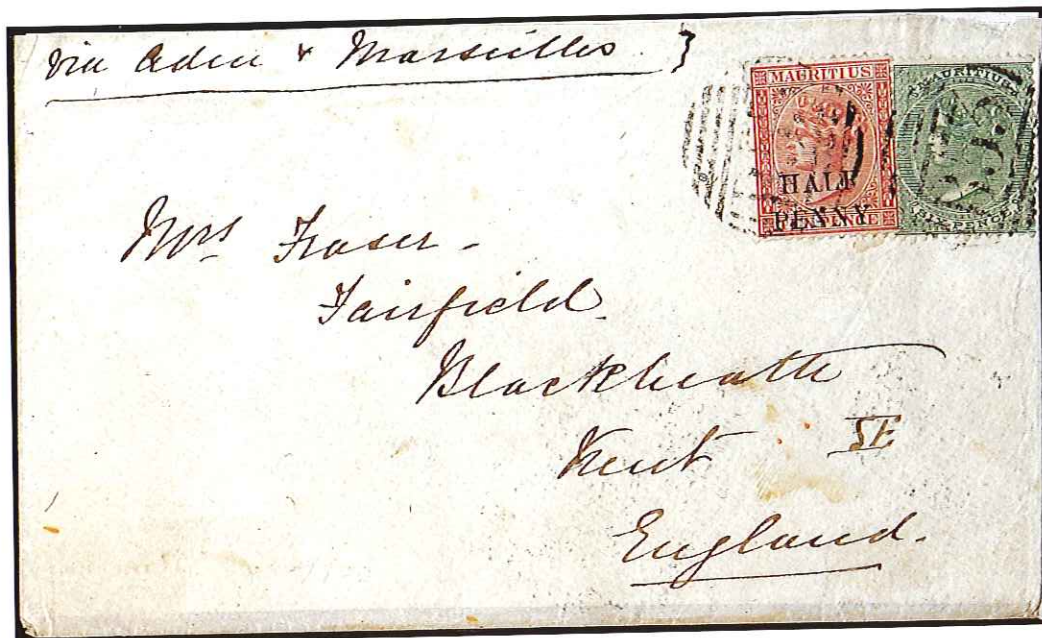 via Aden & Marseilles
MAURITIUS
HALF
PENNY
MAURITIUS
SIX PENCE
Mrs Fraser-
Fairfield.
Blackheath
Kent SE
England.